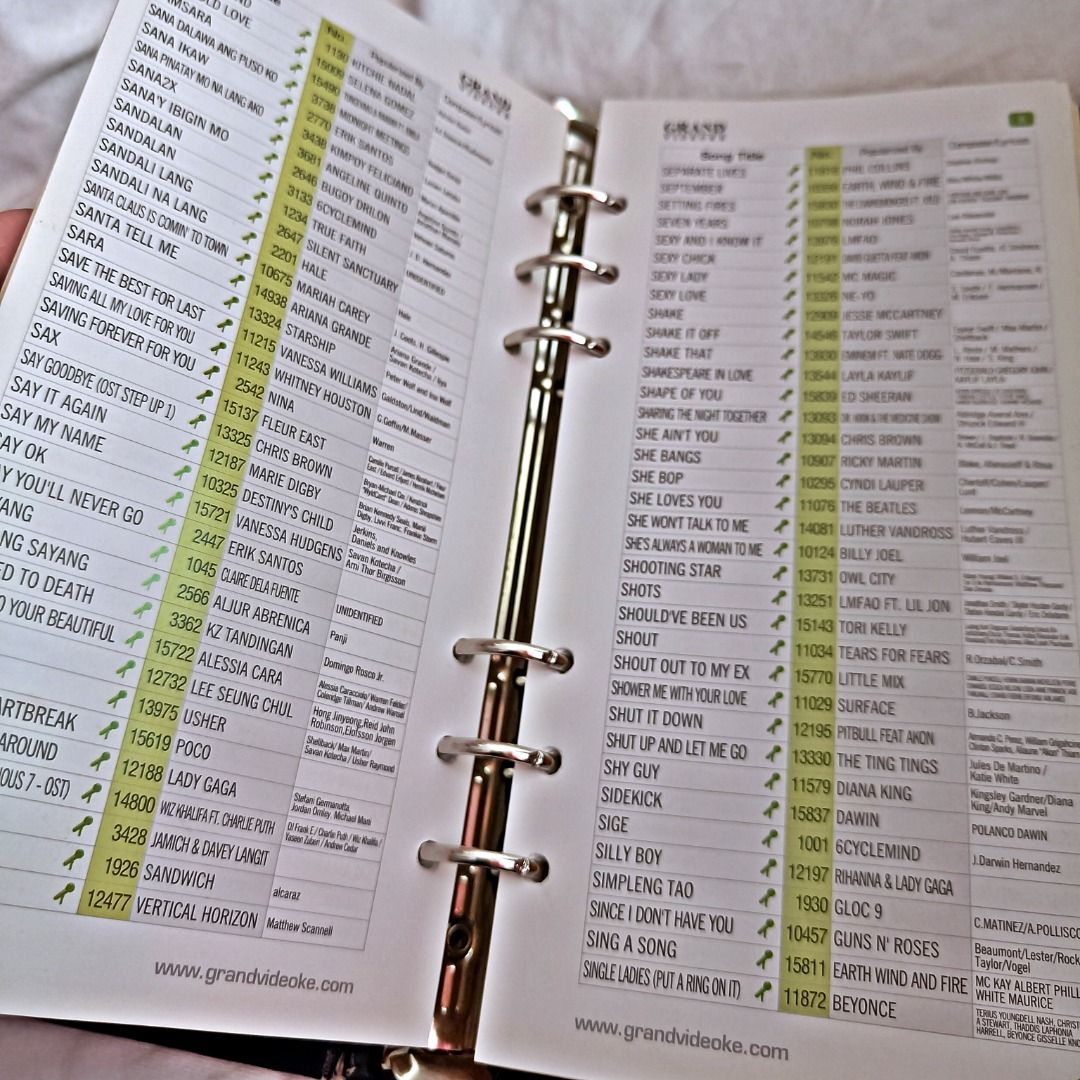 OLD LOVE SELENA GOMEZ
MSARA 15490
SANA DALAWA ANG PUSO KO 3738 MIDNIGHT MEETINGS
SANA IKAW 2770 ERIK SANTOS
SANA PINATAY MO NA LANG AKO 3438 KIMPOY FELICIANO
SANA2X 3681 ANGELINE QUINTO
SANA'Y IBIGIN MO 2646 BUGOY DRILON
SANDALAN 3133 6CYCLEMIND
SANDALAN 1234 TRUE FAITH
SANDALI LANG 2647 SILENT SANCTUARY UNIDENTIFIED
SANDALI NA LANG 2201 HALE Hale
SANTA CLAUS IS COMIN' TO TOWN 10675 MARIAH CAREY J. Coots, H. Gillespie
SANTA TELL ME 14938 ARIANA GRANDE Ariana Grande / Savan Kotecha / Ilya
SARA 13324 STARSHIP Peter Wolf and Ina Wolf
SAVE THE BEST FOR LAST 11215 VANESSA WILLIAMS Galdston/Lind/Waldman
SAVING ALL MY LOVE FOR YOU 11243 WHITNEY HOUSTON G.Goffin/M.Masser
SAVING FOREVER FOR YOU 2542 NINA Warren
SAX 15137 FLEUR EAST
SAY GOODBYE (OST STEP UP 1) 13325 CHRIS BROWN
SAY IT AGAIN 12187 MARIE DIGBY
SAY MY NAME 10325 DESTINY'S CHILD Jerkins, Daniels and Knowles
AY OK 15721 VANESSA HUDGENS Savan Kotecha / Arni Thor Birgisson
Y YOU'LL NEVER GO 2447 ERIK SANTOS
ANG 1045 CLAIRE DELA FUENTE UNIDENTIFIED
NG SAYANG 2566 ALJUR ABRENICA Panji
ED TO DEATH 3362 KZ TANDINGAN Domingo Rosco Jr.
O YOUR BEAUTIFUL 15722 ALESSIA CARA Alessia Caracciolo/ Warren Felder/ Coleridge Tillman/ Andrew Wansel
12732 LEE SEUNG CHUL Hong Jinyeong,Reid John Robinson,Elofsson Jorgen
13975 USHER Shellback/ Max Martin/ Savan Kotecha / Usher Raymond
ARTBREAK 15619 POCO
AROUND 12188 LADY GAGA Stefani Germanotta,
IOUS 7 - OST) 14800 WIZ KHALIFA FT. CHARLIE PUTH DJ Frank E / Charlie Puth / Wiz Khalifa / Andrew Cedar
3428 JAMICH & DAVEY LANGIT
1926 SANDWICH alcaraz
12477 VERTICAL HORIZON Matthew Scannell
www.grandvideoke.com
GRAND
Song Title
SEPARATE LIVES PHIL COLLINS
SEPTEMBER EARTH, WIND & FIRE
SETTING FIRES
SEVEN YEARS NORAH JONES
SEXY AND I KNOW IT 13976 LMFAO
SEXY CHICK 12191 DAVID GUETTA FEAT AKON
SEXY LADY 11542 MC MAGIC
SEXY LOVE 13326 NE-YO
SHAKE 12909 JESSE MCCARTNEY
SHAKE IT OFF 14546 TAYLOR SWIFT
SHAKE THAT 13930 EMINEM FT. NATE DOGG
SHAKESPEARE IN LOVE 13544 LAYLA KAYLIF
SHAPE OF YOU 15839 ED SHEERAN
SHARING THE NIGHT TOGETHER 13093 DR. HOOK & THE MEDICINE SHOW
SHE AIN'T YOU 13094 CHRIS BROWN
SHE BANGS 10907 RICKY MARTIN
SHE BOP 10295 CYNDI LAUPER
SHE LOVES YOU 11076 THE BEATLES Lennon/McCartney
SHE WON'T TALK TO ME 14081 LUTHER VANDROSS
SHE'S ALWAYS A WOMAN TO ME 10124 BILLY JOEL William Joel
SHOOTING STAR 13731 OWL CITY
SHOTS 13251 LMFAO FT. LIL JON
SHOULD'VE BEEN US 15143 TORI KELLY
SHOUT 11034 TEARS FOR FEARS R.Orzabal/C.Smith
SHOUT OUT TO MY EX 15770 LITTLE MIX
SHOWER ME WITH YOUR LOVE 11029 SURFACE B.Jackson
SHUT IT DOWN 12195 PITBULL FEAT AKON
SHUT UP AND LET ME GO 13330 THE TING TINGS Jules De Martino / Katie White
SHY GUY 11579 DIANA KING Kingsley Gardner/Diana King/Andy Marvel
SIDEKICK 15837 DAWIN POLANCO DAWIN
SIGE 1001 6CYCLEMIND J.Darwin Hernandez
SILLY BOY 12197 RIHANNA & LADY GAGA
SIMPLENG TAO 1930 GLOC 9 C.MATINEZ/A.POLLISCO
SINCE I DON'T HAVE YOU 10457 GUNS N' ROSES Beaumont/Lester/Rock Taylor/Vogel
SING A SONG 15811 EARTH WIND AND FIRE MC KAY ALBERT PHILL WHITE MAURICE
SINGLE LADIES (PUT A RING ON IT) 11872 BEYONCE TERIUS YOUNGDELL NASH, CHRIST A STEWART, THADDIS LAPHONIA HARRELL, BEYONCE GISSELLE KNO
www.grandvideoke.com